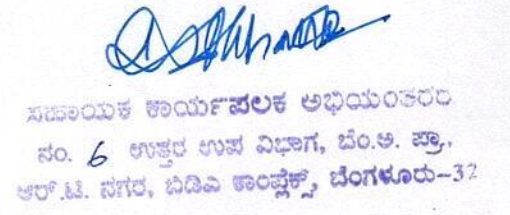 ಸಹಾಯಕ ಕಾರ್ಯಪಾಲಕ ಅಭಿಯಂತರರು
ನಂ. 6 ಉತ್ತರ ಉಪ ವಿಭಾಗ, ಬೆಂ.ಅ. ಪ್ರಾ.,
ಆರ್.ಟಿ. ನಗರ, ಬಿಡಿಎ ಕಾಂಪ್ಲೆಕ್ಸ್, ಬೆಂಗಳೂರು-32